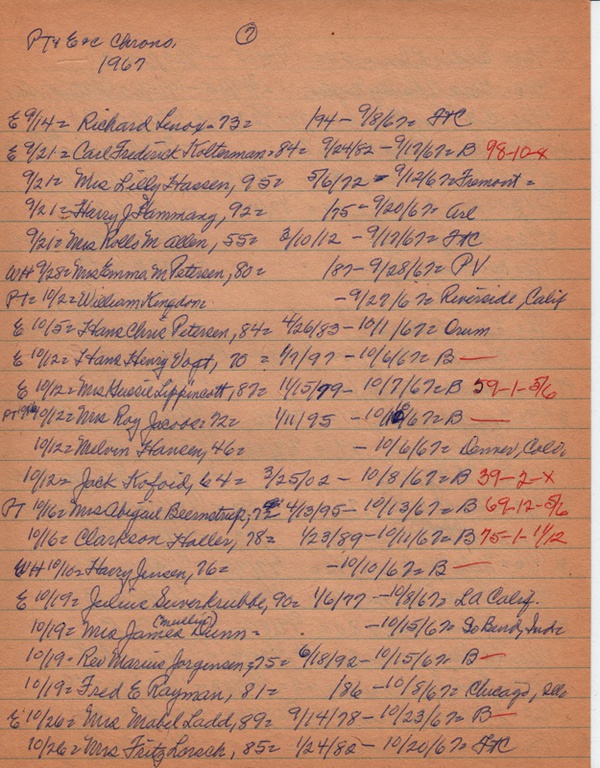 PT & E &c Chrono. 7
1967
E 9/14 = Richard Lenox - 73 = /94 - 9/8/67 = FtC
E 9/21 = Carl Frederick Kolterman = 84 = 9/24/82 - 9/17/67 = B 98-10-x
9/21 = Mrs Lilly Hassen, 95 = 5/6/72 - 9/12/67 = Fremont =
9/21 = Harry J Hammang, 92 = /75 - 9/20/67 = Arl
9/21 = Mrs Rollo M Allen, 55 = 3/10/12 - 9/17/67 = FtC
WH 9/28 = Mrs Emma M Petersen, 80 = /87 - 9/28/67 = PV
PT = 10/2 = William Kingdon - 9/27/67 = Riverside, Calif
E 10/5 = Hans Chris Petersen, 84 = 4/26/83 - 10/1/67 = Orum
E 10/12 = Hans Henry Vogt, 70 = 1/9/97 - 10/6/67 = B —
E 10/12 = Mrs Gussie Lippincott, 87 = 11/15/79 - 10/7/67 = B 59-1-5/6
PT 10/12 = Mrs Roy Jacobs = 72 = 1/11/95 - 10/ /67 = B —
10/12 = Melvin Hansen, 46 = - 10/6/67 = Denver, Colo,
10/12 = Jack Kofoid, 64 = 3/25/02 - 10/8/67 = B 39-2-x
PT 10/16 = Mrs Abigail Beernstrup, 72 4/13/95 - 10/13/67 = B 69-12-5/6
10/16 = Clarkson Haller, 78 = 1/23/89 - 10/11/67 = B 75-1-1/12
WH 10/10 = Harry Jensen, 76 = - 10/10/67 = B —
E 10/19 = Julius Suverkrubbe, 90 = 1/6/77 - 10/8/67 = LA Calif.
10/19 = Mrs James Dunn = - 10/15/67 = So Bend, Ind =
10/19 - Rev Marius Jorgensen, 75 = 6/18/92 - 10/15/67 = B —
10/19 = Fred E Rayman, 81 = /86 - 10/8/67 = Chicago, Ills
E 10/26 = Mrs Mabel Ladd, 89 = 9/14/78 - 10/23/67 = B —
10/26 = Mrs Fritz Lorsch, 85 = 1/24/82 - 10/20/67 = FtC